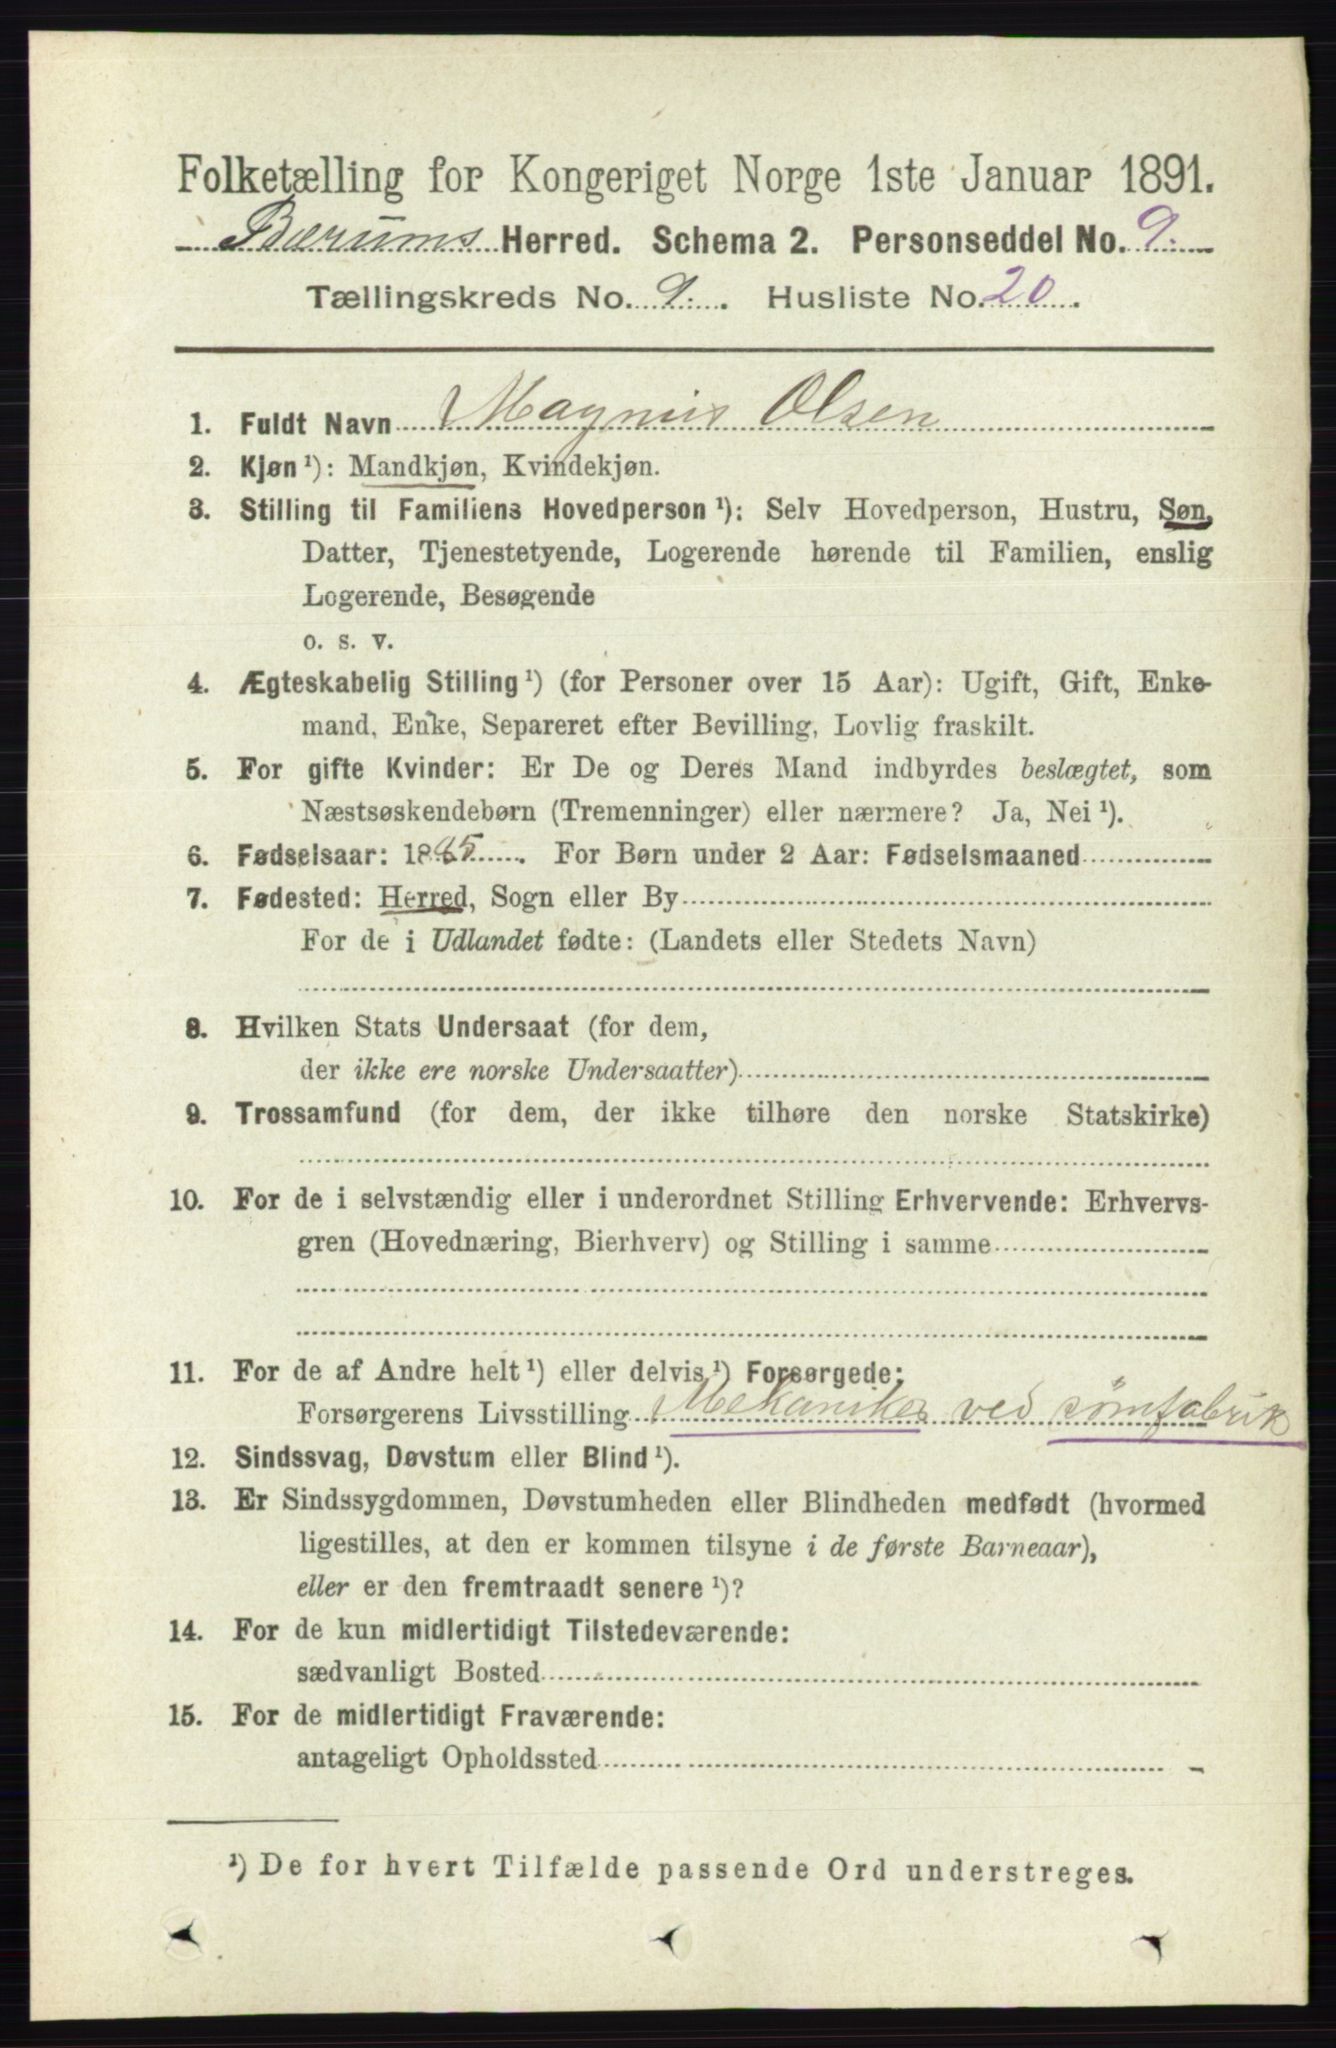 Folketælling for Kongeriget Norge 1ste Januar 1891.
Bærums Herred. Schema 2. Personseddel No. 9.
Tællingskreds No. 9. Husliste No. 20.
1. Fuldt Navn Magnus Olsen
2. Kjøn ¹): Mandkjøn, Kvindekjøn.
3. Stilling til Familiens Hovedperson ¹): Selv Hovedperson, Hustru, Søn,
Datter, Tjenestetyende, Logerende hørende til Familien, enslig
Logerende, Besøgende
o. s. v.
4. Ægteskabelig Stilling ¹) (for Personer over 15 Aar): Ugift, Gift, Enke-
mand, Enke, Separeret efter Bevilling, Lovlig fraskilt.
5. For gifte Kvinder: Er De og Deres Mand indbyrdes beslægtet, som
Næstsøskendebørn (Tremenninger) eller nærmere? Ja, Nei ¹).
6. Fødselsaar: 1885. For Børn under 2 Aar: Fødselsmaaned
7. Fødested: Herred, Sogn eller By
For de i Udlandet fødte: (Landets eller Stedets Navn)
8. Hvilken Stats Undersaat (for dem,
der ikke ere norske Undersaatter)
9. Trossamfund (for dem, der ikke tilhøre den norske Statskirke)
10. For de i selvstændig eller i underordnet Stilling Erhvervende: Erhvervs-
gren (Hovednæring, Bierhverv) og Stilling i samme
11. For de af Andre helt ¹) eller delvis ¹) Forsørgede:
Forsørgerens Livsstilling Mekaniker ved sömfabrik
12. Sindssvag, Døvstum eller Blind ¹).
13. Er Sindssygdommen, Døvstumheden eller Blindheden medfødt (hvormed
ligestilles, at den er kommen tilsyne i de første Barneaar),
eller er den fremtraadt senere ¹)?
14. For de kun midlertidigt Tilstedeværende:
sædvanligt Bosted
15. For de midlertidigt Fraværende:
antageligt Opholdssted
¹) De for hvert Tilfælde passende Ord understreges.